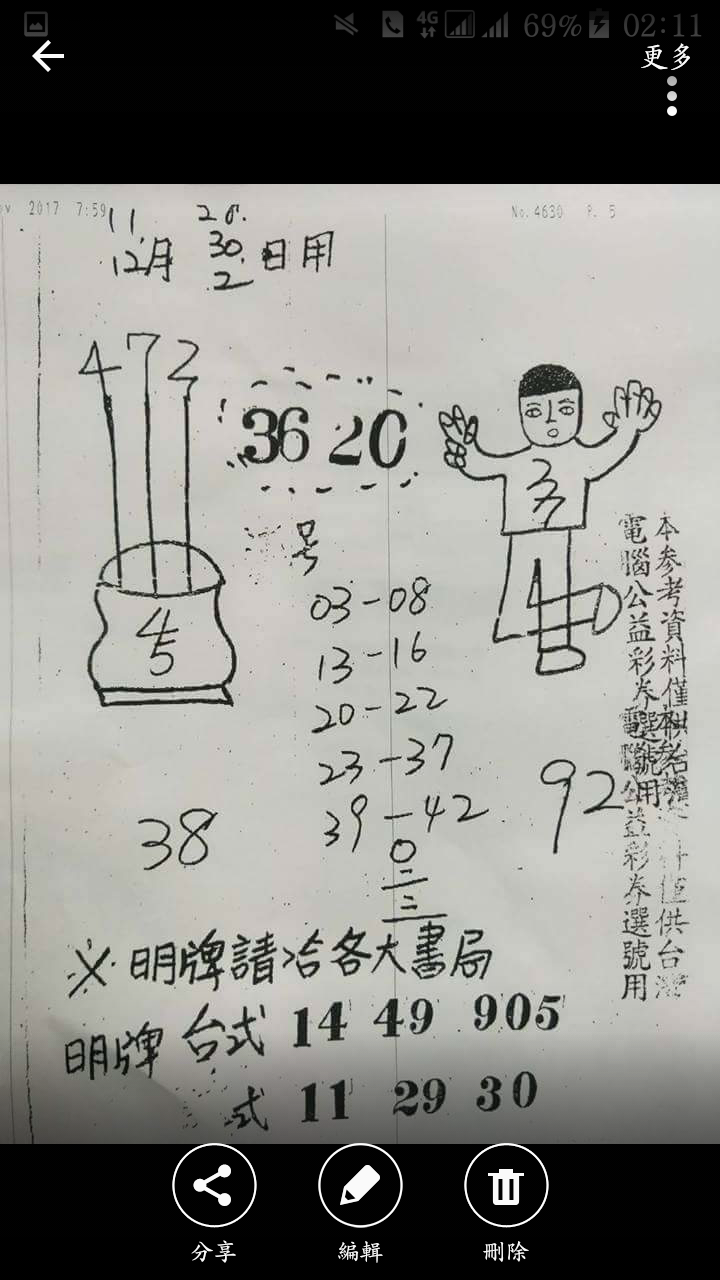 4G 69% 02:11
更多
2017 7:59
No.4630 P. 5
11 28.
12月 30. 日用
2
4 7 2
36 20
号
03-08
13-16
20-22
23-37
39-42
45
38
92
本参考資料僅供台灣
電腦公益彩券選號用
※明牌請洽各大書局
明牌 台式 14 49 905
式 11 29 30
分享
編輯
刪除